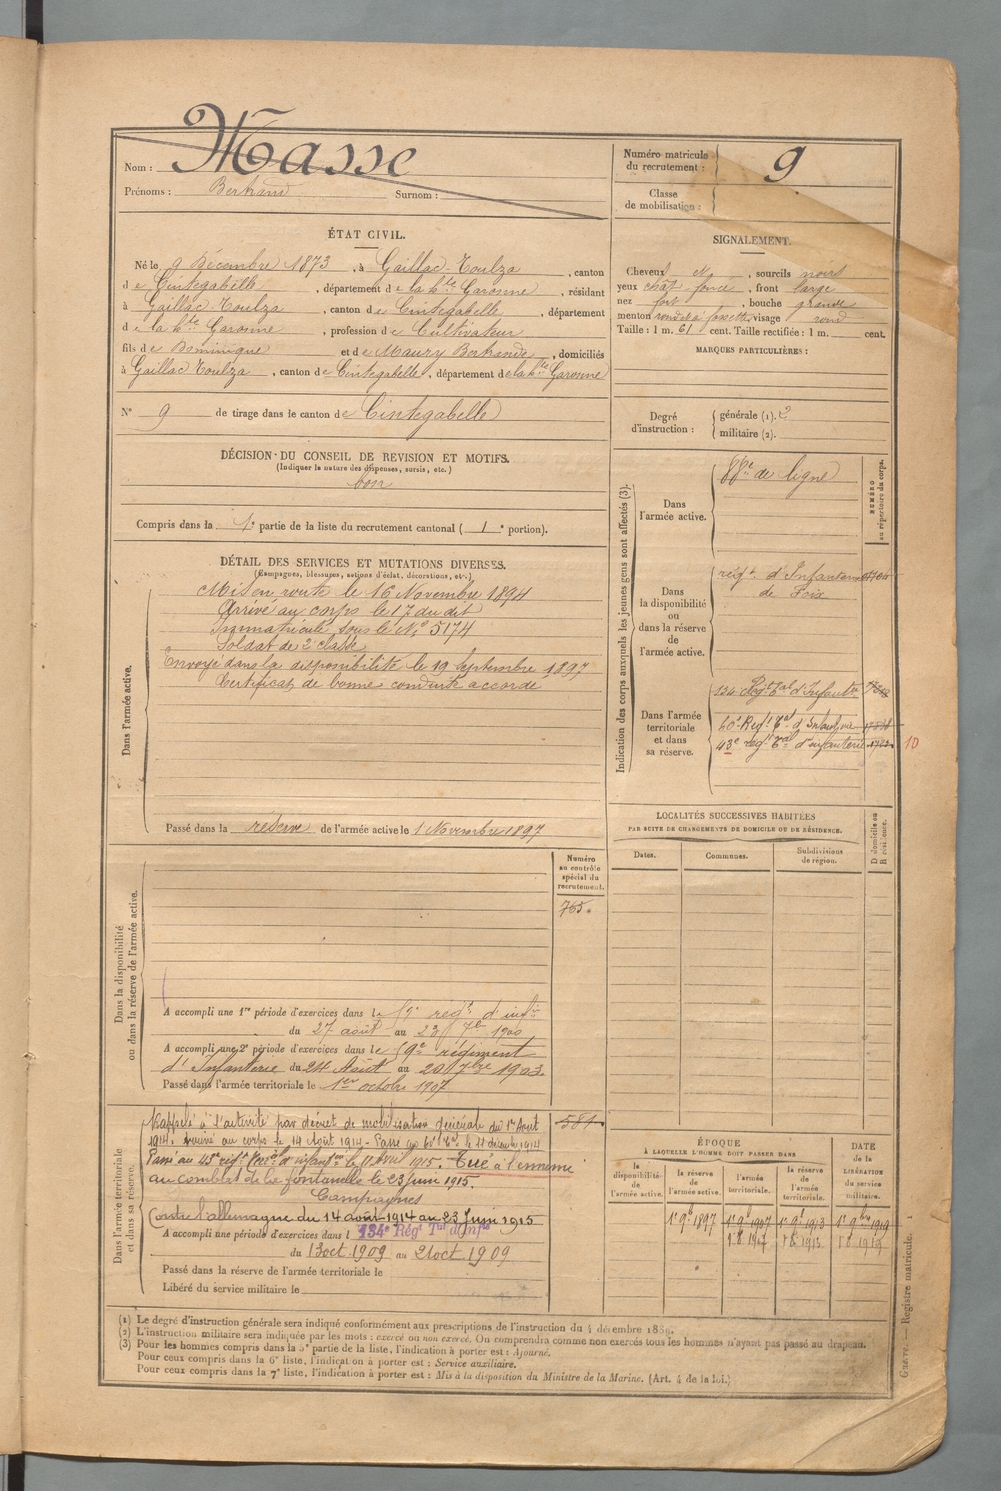 Nom : Masse
Prénoms : Bertrand Surnom :
Numéro matricule du recrutement : 9
Classe de mobilisation :
ÉTAT CIVIL.
Né le 9 Décembre 1873, à Gaillac-Toulza, canton
de Cintegabelle, département de la hte Garonne, résidant
à Gaillac Toulza, canton de Cintegabelle, département
de la hte Garonne, profession de Cultivateur
fils de Dominique et de Maury Bertrande, domiciliés
à Gaillac Toulza, canton de Cintegabelle, département de la hte Garonne
N° 9 de tirage dans le canton de Cintegabelle
SIGNALEMENT.
Cheveux N, sourcils noirs
yeux chât foncé, front large
nez fort, bouche grande
menton rond à fossette, visage rond
Taille : 1 m. 61 cent. Taille rectifiée : 1 m. cent.
MARQUES PARTICULIÈRES :
Degré d'instruction : générale (1). 2
militaire (2).
DÉCISION DU CONSEIL DE REVISION ET MOTIFS.
(Indiquer la nature des dispenses, sursis, etc.)
bon
Compris dans la 1e partie de la liste du recrutement cantonal ( 1e portion).
DÉTAIL DES SERVICES ET MUTATIONS DIVERSES.
(Campagnes, blessures, actions d'éclat, décorations, etc.)
Dans l'armée active.
Mis en route le 16 Novembre 1894
Arrivé au corps le 17 du dit
Immatriculé sous le No 5174
Soldat de 2e classe
Envoyé dans la disponibilité le 19 Septembre 1897
Certificat de bonne conduite accordé
Passé dans la réserve de l'armée active le 1 Novembre 1897
Indication des corps auxquels les jeunes gens sont affectés (3).
NUMÉRO au répertoire du corps.
Dans l'armée active. 88e de ligne
Dans la disponibilité ou dans la réserve de l'armée active. régt d'Infanterie
de Foix
Dans l'armée territoriale et dans sa réserve. 134 Régt tal d'Infantrie
60e Regt Tal d'Infanterie
43e regt Tal d'infanterie
10
LOCALITÉS SUCCESSIVES HABITÉES
PAR SUITE DE CHANGEMENTS DE DOMICILE OU DE RÉSIDENCE.
Dates. Communes. Subdivisions de région. D domicile ou R résidence.
Dans la disponibilité ou dans la réserve de l'armée active.
Numéro au contrôle spécial du recrutement.
765
A accompli une 1re période d'exercices dans le 59e regt d'infie
du 27 août au 23 7bre 1900
A accompli une 2e période d'exercices dans le 59e régiment
d'Infanterie du 24 Août au 20 7bre 1903.
Passé dans l'armée territoriale le 1er octobre 1907
Dans l'armée territoriale et dans sa réserve.
581
Rappelé à l'activité par décret de mobilisation générale du 1er Août
1914. Arrivé au corps le 14 Août 1914 - Passé au
Passé au 43e régt le 11 Avril 1915. Tué à l'ennemi
au combat de la fontanelle le 23 juin 1915.
Campagnes
Contre l'allemagne du 14 août 1914 au 23 Juin 1915
A accompli une période d'exercices dans l 134e Régt Tal d'Infie
du 13 oct 1909 au 21 oct 1909
Passé dans la réserve de l'armée territoriale le
Libéré du service militaire le
ÉPOQUE
À LAQUELLE L'HOMME DOIT PASSER DANS
la disponibilité de l'armée active. la réserve de l'armée active. l'armée territoriale. la réserve de l'armée territoriale.
DATE de la LIBÉRATION du service militaire.
1er 9b 1897 1er 9b 1907 1er 9b 1913 1er 9bre 1919
(1) Le degré d'instruction générale sera indiqué conformément aux prescriptions de l'instruction du 4 décembre 1889.
(2) L'instruction militaire sera indiquée par les mots : exercé ou non exercé. On comprendra comme non exercés tous les hommes n'ayant pas passé au drapeau.
(3) Pour les hommes compris dans la 5e partie de la liste, l'indication à porter est : Ajourné.
Pour ceux compris dans la 6e liste, l'indication à porter est : Service auxiliaire.
Pour ceux compris dans la 7e liste, l'indication à porter est : Mis à la disposition du Ministre de la Marine. (Art. 4 de la loi.)
Guerre. — Registre matricule. 1